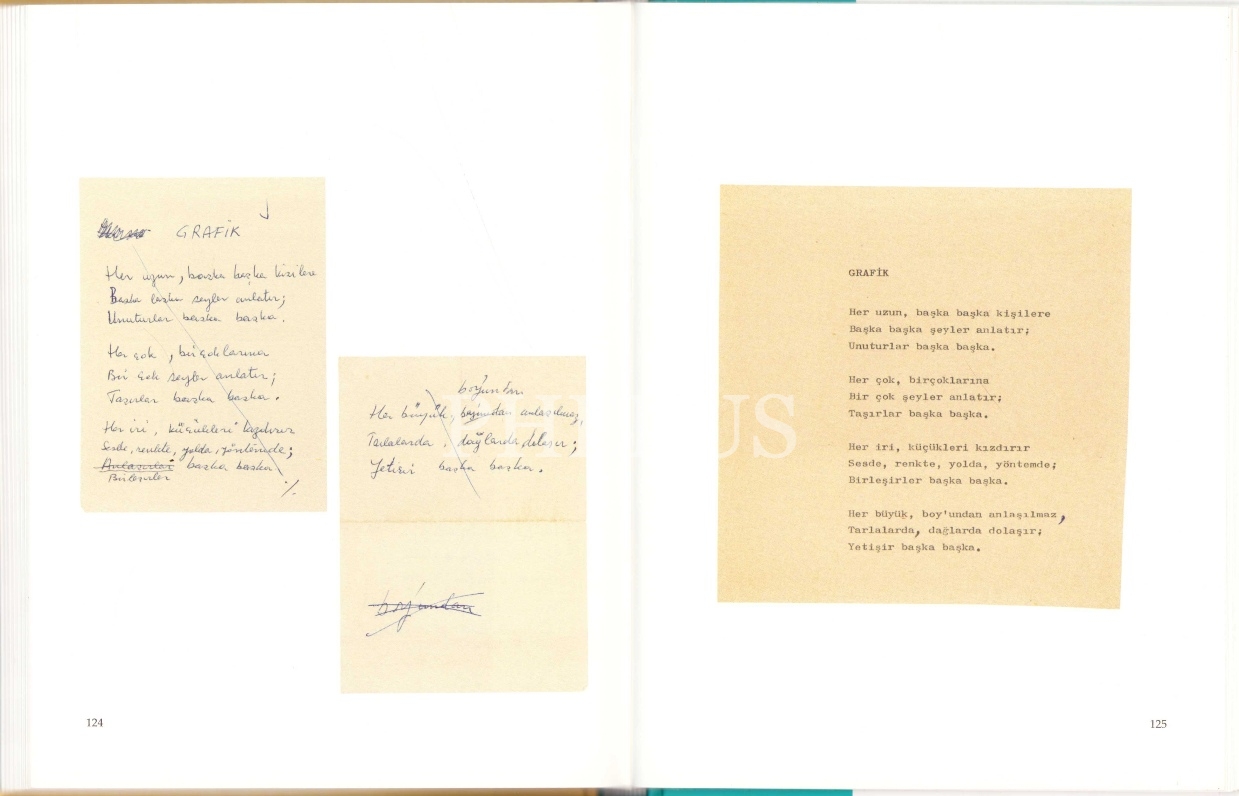 GRAFİK
Her uzun, başka başka kişilere
Başka başka şeyler anlatır;
Unuturlar başka başka.
Her çok, birçoklarına
Bir çok şeyler anlatır;
Taşırlar başka başka.
Her iri, küçükleri kızdırır
Sesde, renkte, yolda, yöntemde;
Anlaşırlar başka başka
Birleşirler
%
boy'undan
Her büyük, boyundan anlaşılmaz,
Tarlalarda, dağlarda dolaşır;
Yetişir başka başka.
boy'undan
124
GRAFİK
Her uzun, başka başka kişilere
Başka başka şeyler anlatır;
Unuturlar başka başka.
Her çok, birçoklarına
Bir çok şeyler anlatır;
Taşırlar başka başka.
Her iri, küçükleri kızdırır
Sesde, renkte, yolda, yöntemde;
Birleşirler başka başka.
Her büyük, boy'undan anlaşılmaz,
Tarlalarda, dağlarda dolaşır;
Yetişir başka başka.
125